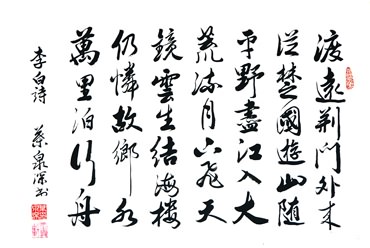 渡遠荆門外来
從楚國遊山随
平野盡江入大
荒流月下飛天
鏡雲生結海樓
仍憐故鄉水
萬里泊行舟
李白诗 蔡泉深书